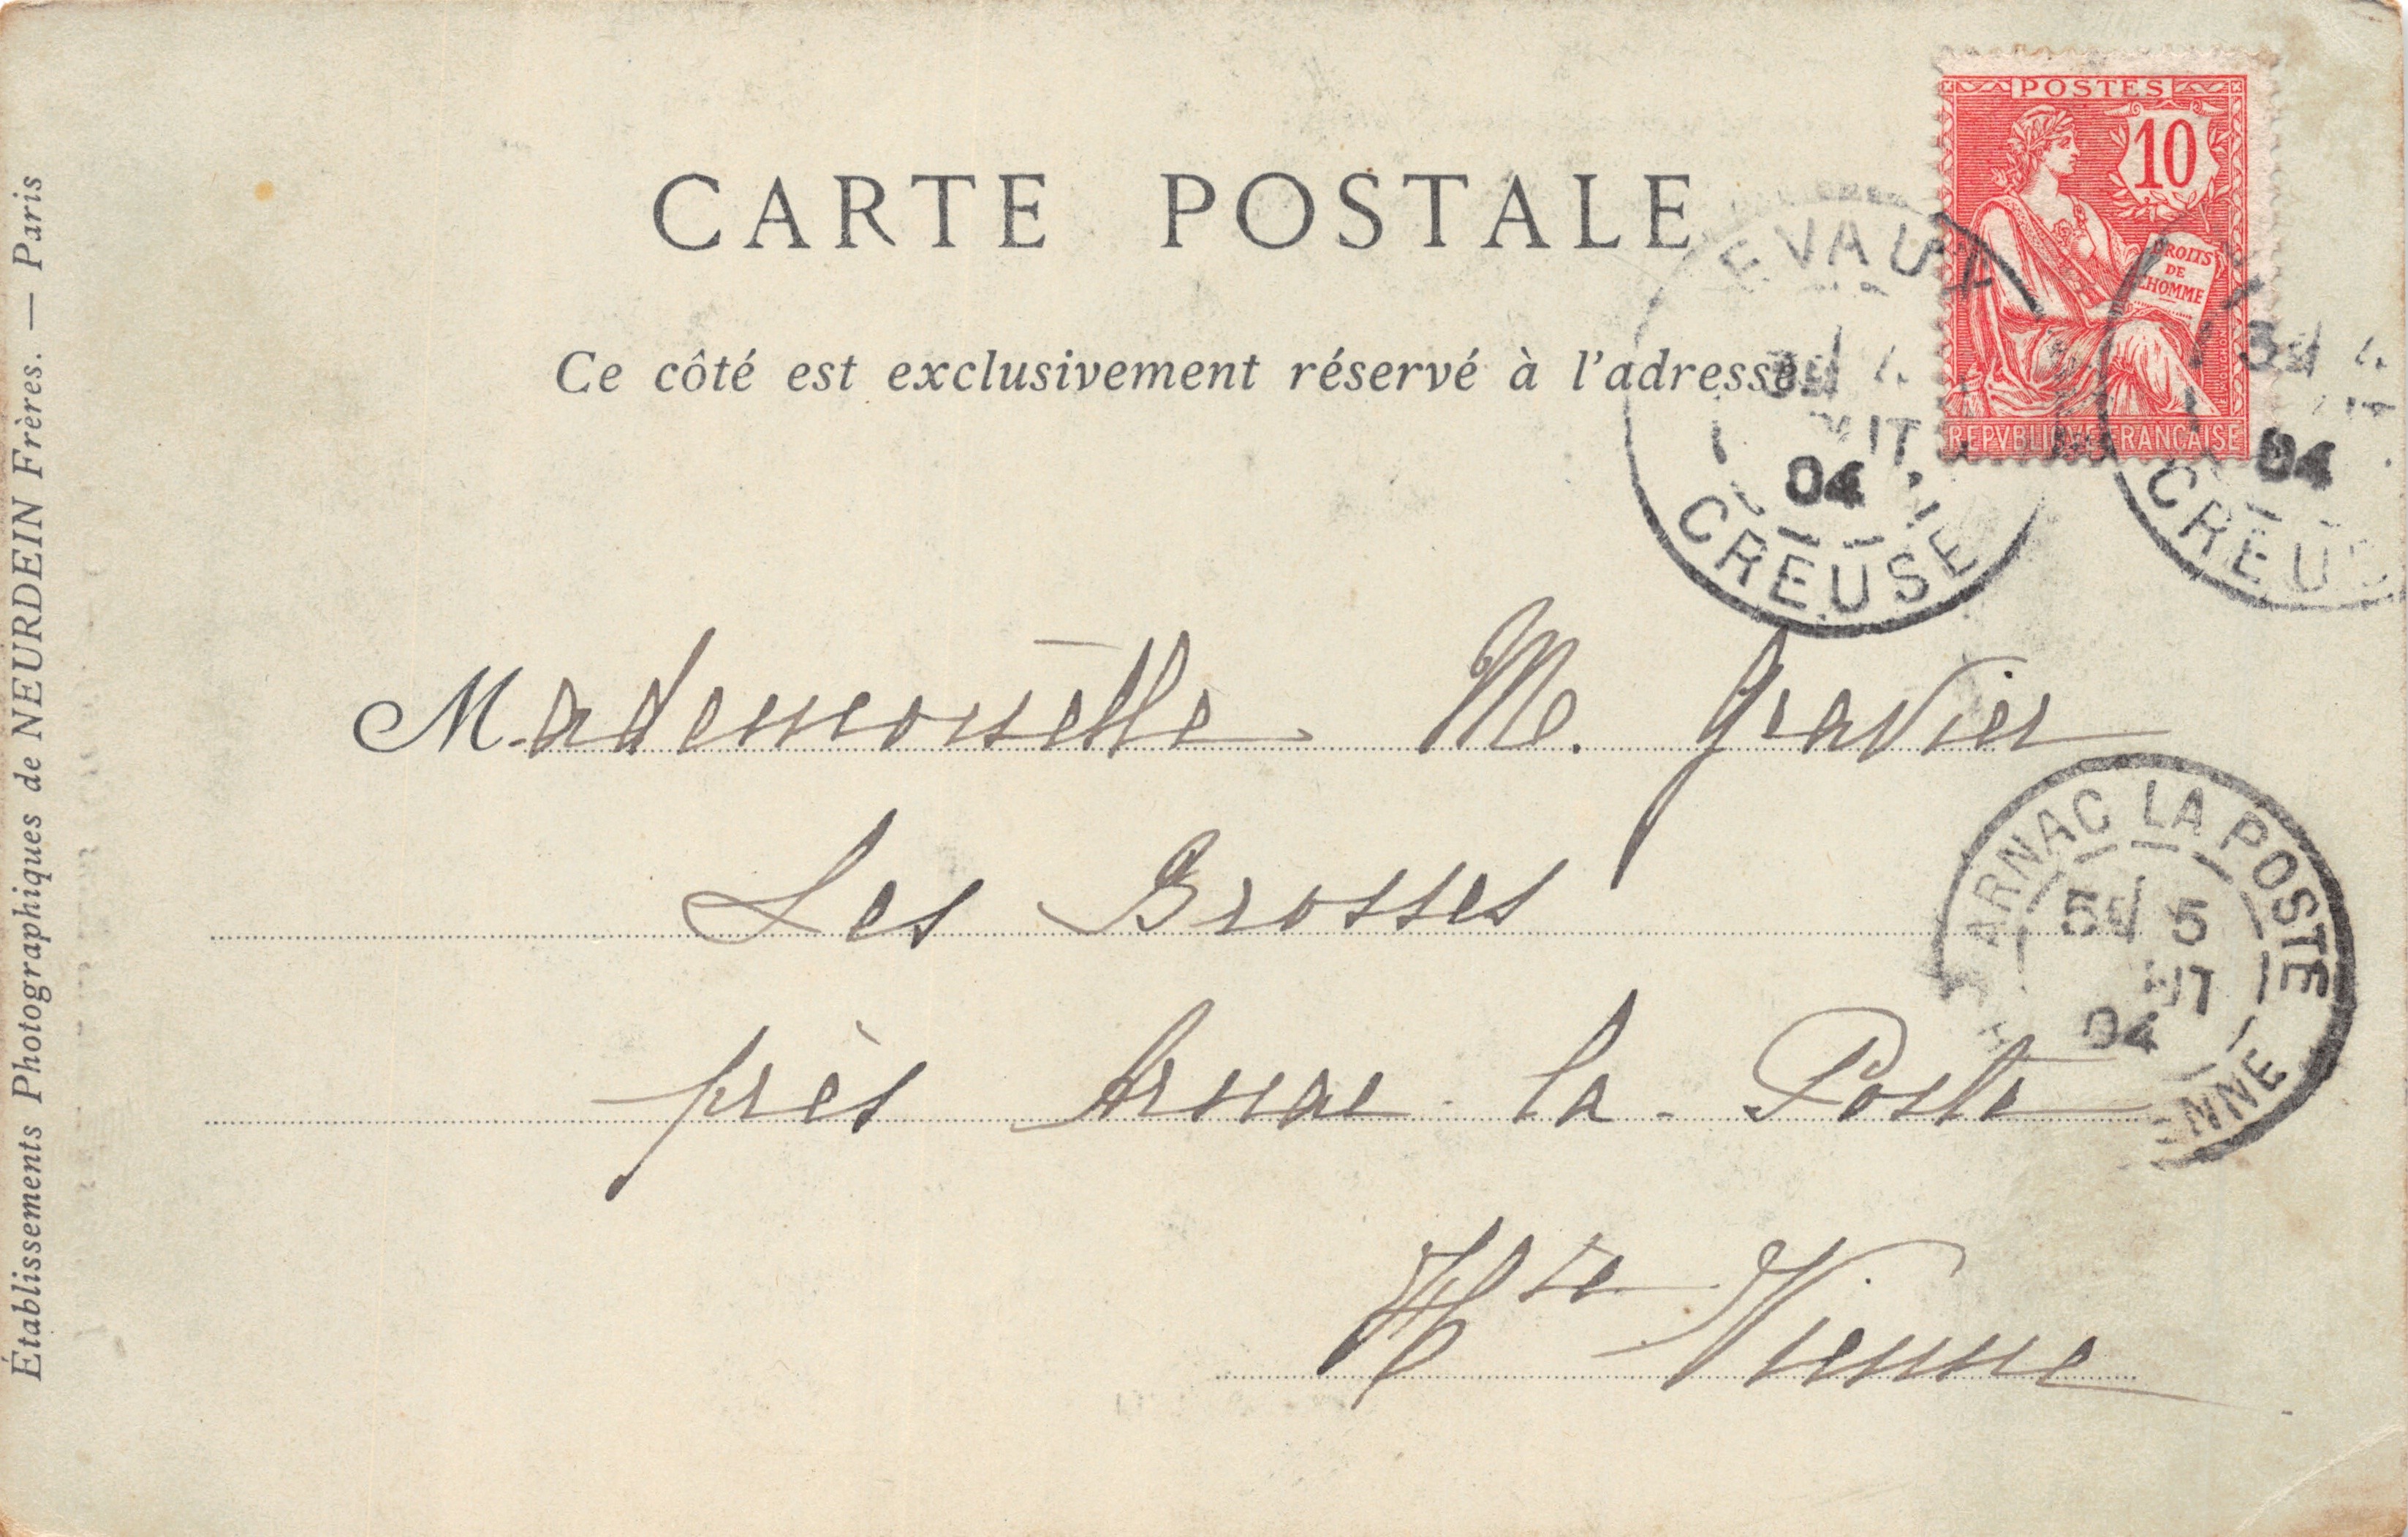 CARTE POSTALE
Ce côté est exclusivement réservé à l'adresse
POSTES
10
DROITS
DE
L'HOMME
REPVBLIQVE FRANÇAISE
EVAUX
3E/ 4
04
CREUSE
3E/ 4
04
CREUS
Mademoiselle M. Gravier
Les Brosses
près Arnac-la-Poste
Hte Vienne
ARNAC LA POSTE
5E/ 5
04
ENNE
Établissements Photographiques de NEURDEIN Frères. — Paris